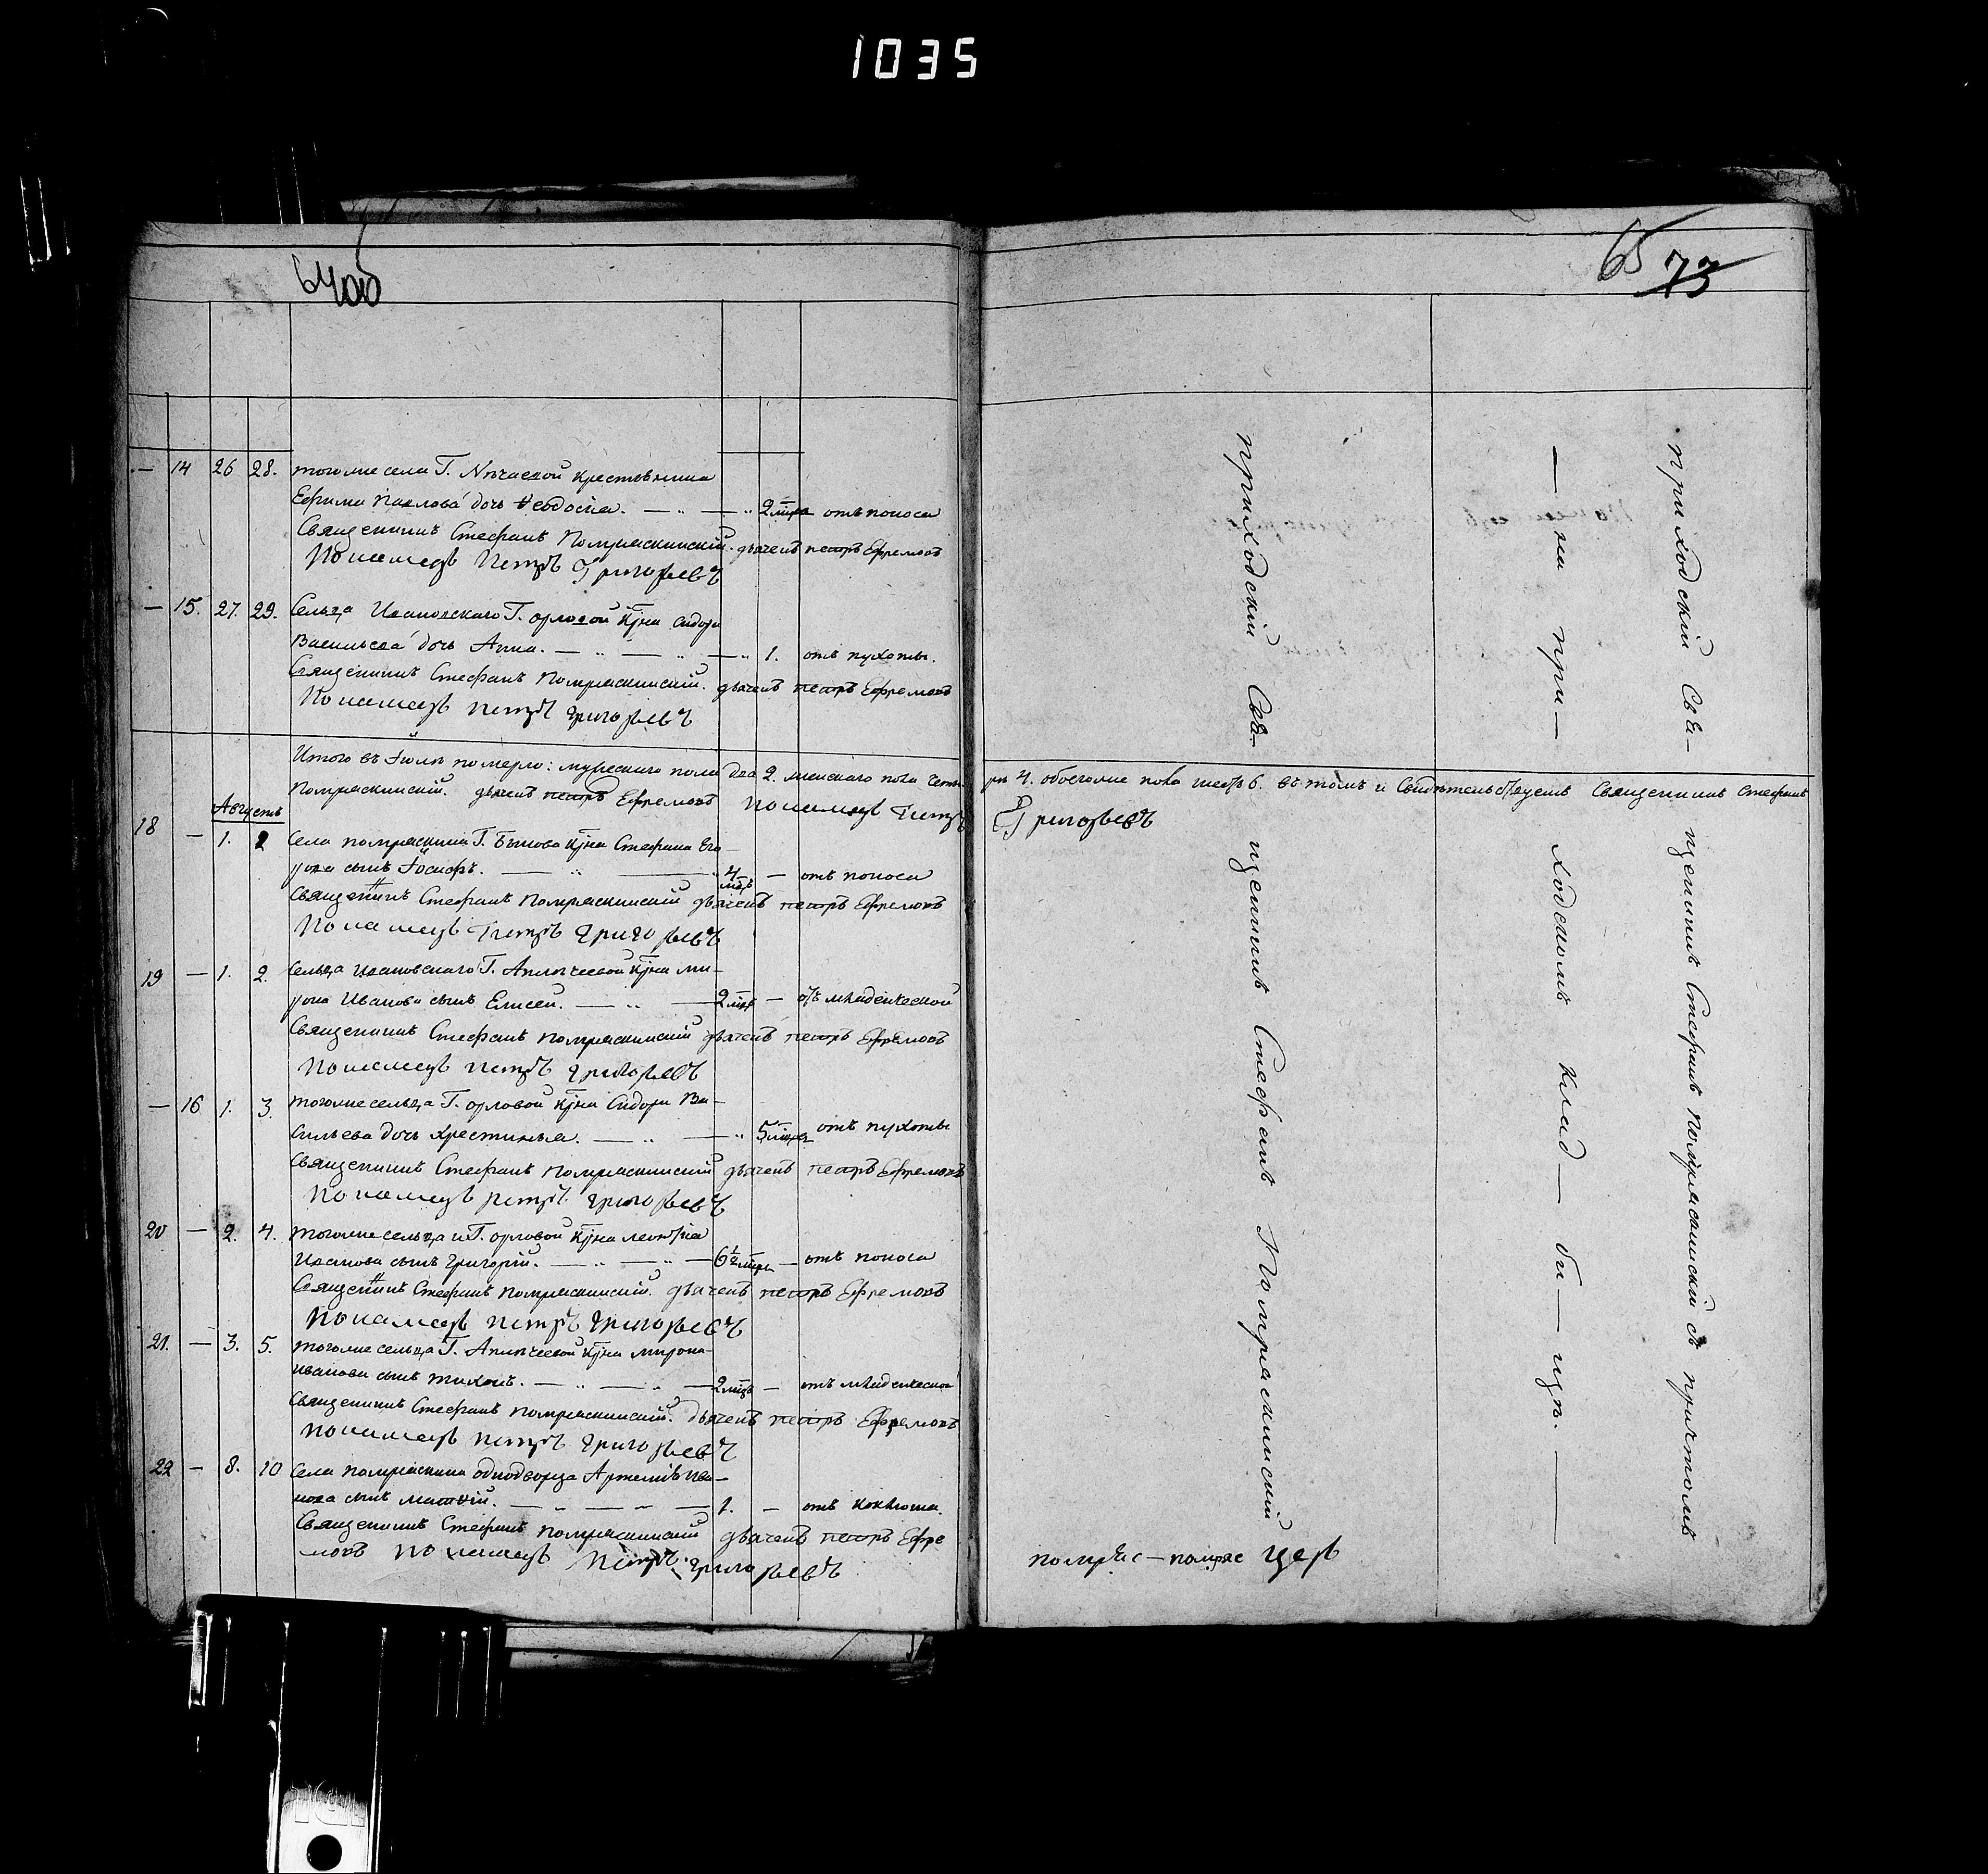 1035
64об
65 73
— 14 26 28. тогоже села Г. Нѣчаевой крестьянина
Ефима Павлова дочь Ѳеодосіа. — „ — „ 2 мѣца отъ поноса
Священникъ Стефанъ Помряскинскій. дьячекъ петръ Ефремовъ
Пономарь Петръ Григорьевъ
— 15. 27. 29. Сельца Ивановскаго Г. орловой кр͠на Сидора
Васильева дочь Анна. — „ — „ — „ 1. отъ сухоты.
Священникъ Стефанъ Помряскинскій. дьячекъ петръ Ефремовъ
Пономарь петръ григорьевъ
Итого въ Іюлѣ померло: мужескаго пола два 2. женскаго пола четы-
ри 4. обоегоже пола шесть 6. въ томъ и Свидѣтельствуемъ Священникъ Стефанъ
Помряскинскій. дьячекъ петръ Ефремовъ Пономарь Петръ
Григорьевъ
Августъ
18 — 1. 2 Села помряскина Г. Бышова кр͠на Стефана Его-
рова сынъ Іосифъ. — „ — „ 4 мѣц — отъ поноса
Священникъ Стефанъ Помряскинскій дьячекъ петръ Ефремовъ
Пономарь Петръ григорьевъ
19 — 1. 2. Сельца Ивановскаго Г. кр͠на Ми-
рона Иванова сынъ Елисей. — „ — 2 мѣц — отъ младенческой
Священникъ Стефанъ Помряскинскій дьячекъ петръ Ефремовъ
Пономарь петръ григорьевъ
— 16 1. 3. тогоже сельца Г. орловой кр͠на Сидора Ва-
сильева дочь Христинья. — „ — „ 5 мѣца отъ сухоты
Священникъ Стефанъ Помряскинскій дьячекъ петръ Ефремовъ
Пономарь петръ григорьевъ
20 — 2. 4. тогоже сельца и Г. орловой кр͠на леонтіа
Иванова сынъ Григорій. — „ — „ — 6½ мѣца — отъ поноса
Священникъ Стефанъ Помряскинскій. дьячекъ петръ Ефремовъ
Пономарь петръ григорьевъ
21. — 3. 5. тогоже сельца Г. кр͠на мирона
иванова сынъ тихонъ. — „ — „ — 2 мѣц — отъ младенческой
Священникъ Стефанъ Помряскинскій. дьячекъ петръ Ефремовъ
Пономарь петръ григорьевъ
22 — 8. 10 Села помряскина однодворца Артеміа Ива-
нова сынъ матѳій. — „ — „ — 1. — отъ коклюша.
Священникъ Стефанъ Помряскинскій дьячекъ петръ Ефре
мовъ Пономарь Петръ григорьевъ
приходскій Свя-
щенникъ Стефанъ Помряскинскій
— на при —
ходскомъ клад — би — щѣ. —
приходскій Свя-
щенникъ Стефанъ помряскинскій съ причтомъ
помряс — помряс церь